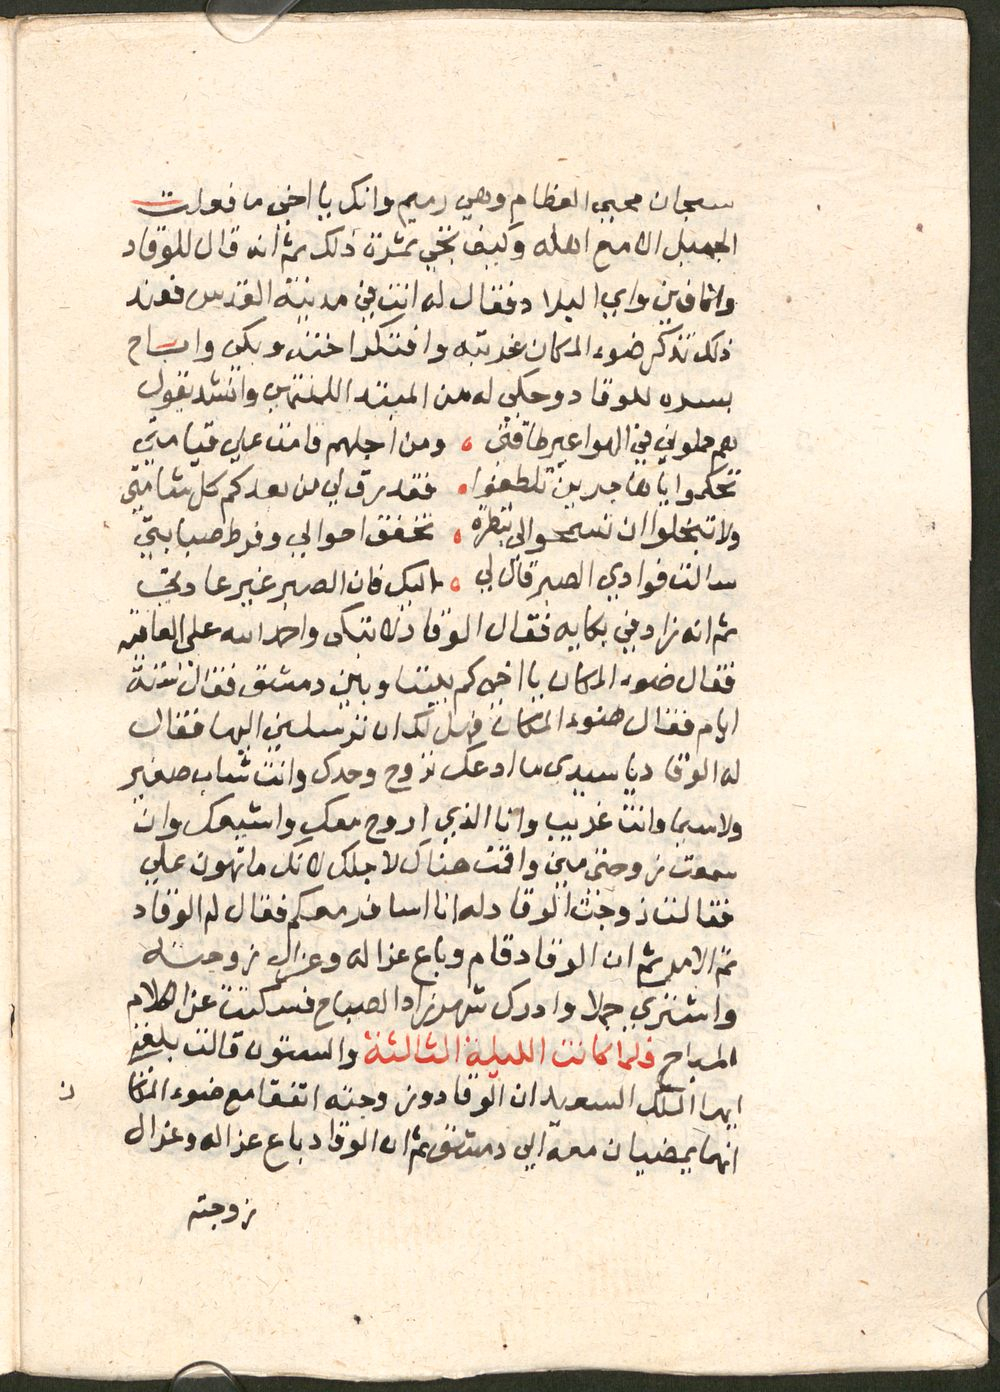 سبحان محيي العظام وهي رميم وانك يا اخي ما فعلت
الجميل الا مع اهله وكيف نجني ثمرة ذلك ثم انه قال للوقاد
وانا في اي البلاد فقال له انت في مدينة القدس فعند
ذلك تذكر ضوء المكان غربته وافتكر اخته وبكي واباح
بسره للوقاد وحكي له من المبتدا للمنتهي وانشد يقول
هم حملوني في الهوا غير طاقتي ، ومن اجلهم قامت علي قيامتي
تحكموا يا هاجرين تلطفوا ، فقد رق لي من بعدكم كل شامتي
ولا تبخلوا ان تسمحوا لي بنظرة ، تخفف احوالي وفرط صبابتي
سالت فوادي الصبر قال لي ، اليك فان الصبر غير عادتي
ثم انه زاد في بكايه فقال الوقاد لا تبكي واحمد الله علي العافية
فقال ضوء المكان يا اخي كم بيننا وبين دمشق فقال ستة
ايام فقال ضوء المكان فهل لك ان ترسلني اليها فقال
له الوقاد يا سيدي ما ادعك تروح وحدك وانت شاب صغير
ولا سيما وانت غريب وانا الذي اروح معك واشيعك وان
سمعت زوجتي مني واقمت هناك لاجلك لانك ما تهون علي
فقالت زوجت الوقاد له انا اسافر معكم فقال لها الوقاد
تم الامر ثم ان الوقاد قام وباع عزاله وعزال زوجته
واشتري جملا وادرك شهرزاد الصباح فسكتت عن الكلام
المباح فلما كانت الليلة الثالثة والستون قالت بلغني
ايها الملك السعيد ان الوقاد وزوجته اتفقا مع ضوء المكا
ن
انهما يمضيان معه الي دمشق ثم ان الوقاد باع عزاله وعزال
زوجته